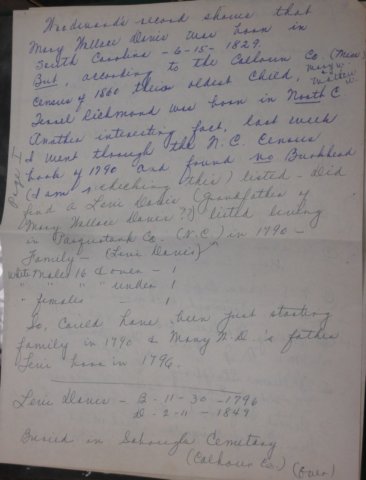 Woodward's record shows that
Mary Wallace Davis was born in
South Carolina - 6-15-1829.
But, according to the Calhoun Co. (Miss)
Census of 1860 their oldest child, Mary W. & Walter W.
Jessel Richmond was born in North C.
Another interesting fact, last week
I went through the N.C. Census
book of 1790 and found no Burkhead
(I am rechecking this) listed - Did
find a Levi Davis (Grandfather of
Mary Wallace Davis??) listed living
in Pasquotank Co. (N.C.) in 1790 -
Family - (Levi Davis)
White Males 16 & over - 1
" " " " under 1
" females - 1
So, Could have been just starting
family in 1790 & Mary W.D.'s father
Levi born in 1796.
Levi Davis - B - 11-30-1796
D - 2-11-1847
Buried in Cemetary
(Calhoun Co.) (over)
Page I